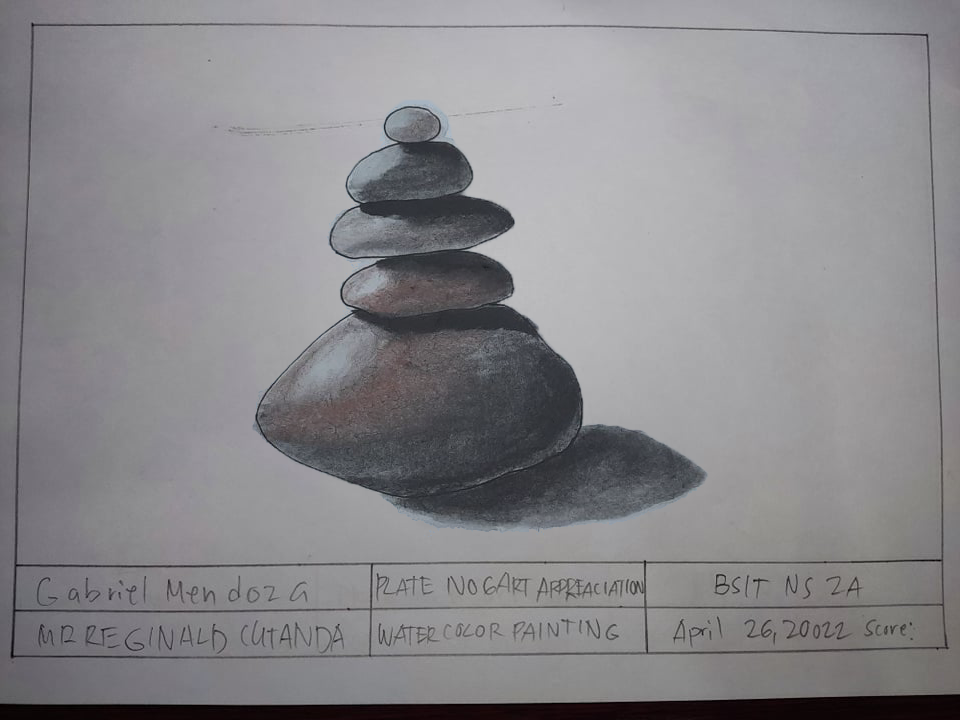 Gabriel Mendoza
PLATE NO6ART APPREACIATION
BSIT NS 2A
MR REGINALD CUTANDA
WATERCOLOR PAINTING
April 26,20022 Score: